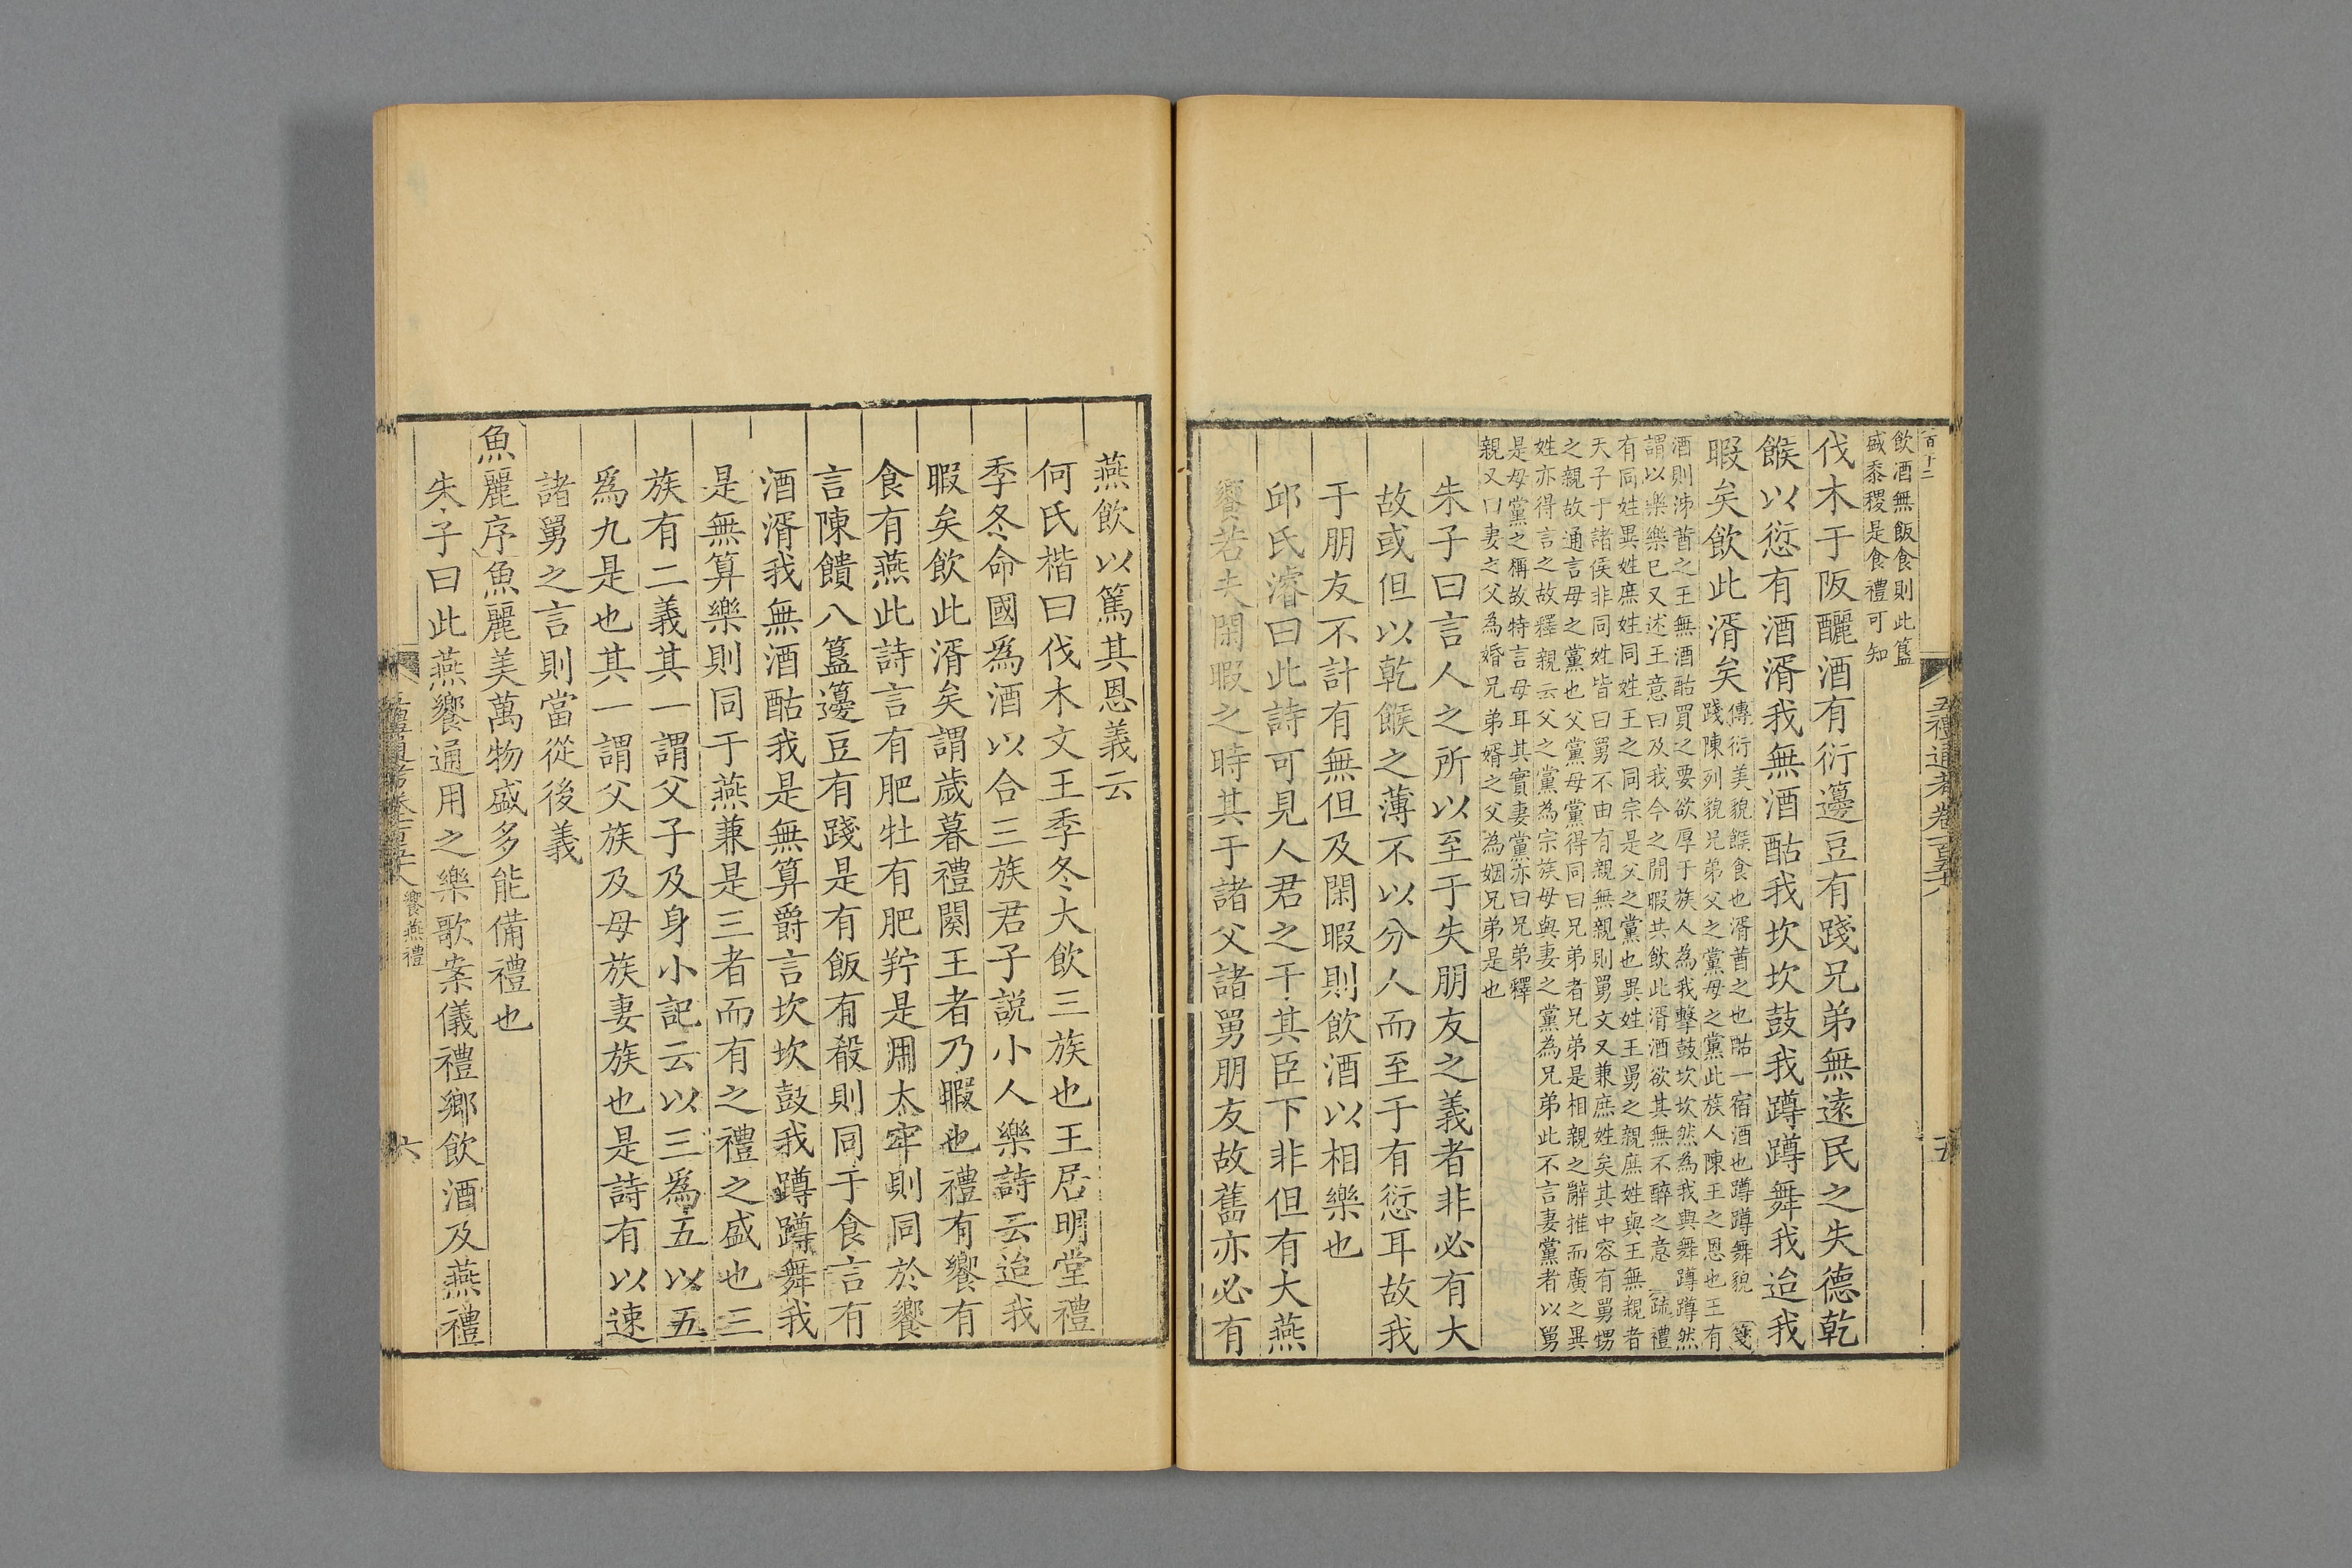 百十二
五禮通考卷一百五十八
五
飲酒無飯食則此簋
盛黍稷是食禮可知
伐木于阪釃酒有衍籩豆有踐兄弟無遠民之失德乾
餱以愆有酒湑我無酒酤我坎坎鼓我蹲蹲舞我迨我
暇矣飲此湑矣
傳衍美貌餱食也湑莤之也酤一宿酒也蹲蹲舞貌 箋
踐陳列貌兄弟父之黨母之黨此族人陳王之恩也王有
酒則泲莤之王無酒酤買之要欲厚于族人為我擊鼓坎坎然為我興舞蹲蹲然
謂以樂樂已又述王意曰及我今之閒暇共飲此湑酒欲其無不醉之意 疏禮
有同姓異姓庶姓同姓王之同宗是父之黨也異姓王舅之親庶姓與王無親者
天子于諸侯非同姓皆曰舅不由有親無親則舅文又兼庶姓矣其中容有舅甥
之親故通言母之黨也父黨母黨得同曰兄弟者兄弟是相親之辭推而廣之異
姓亦得言之故釋親云父之黨為宗族母與妻之黨為兄弟此不言妻黨者以舅
是母黨之稱故特言母耳其實妻黨亦曰兄弟釋
親又曰妻之父為婚兄弟婿之父為姻兄弟是也
朱子曰言人之所以至于失朋友之義者非必有大
故或但以乾餱之薄不以分人而至于有愆耳故我
于朋友不計有無但及閑暇則飲酒以相樂也
邱氏濬曰此詩可見人君之于其臣下非但有大燕
饗若夫閑暇之時其于諸父諸舅朋友故舊亦必有
燕飲以篤其恩義云
何氏楷曰伐木文王季冬大飲三族也王居明堂禮
季冬命國爲酒以合三族君子説小人樂詩云迨我
暇矣飲此湑矣謂歲暮禮闋王者乃暇也禮有饗有
食有燕此詩言有肥牡有肥羜是用太牢則同於饗
言陳饋八簋籩豆有踐是有飯有殽則同于食言有
酒湑我無酒酤我是無算爵言坎坎鼓我蹲蹲舞我
是無算樂則同于燕兼是三者而有之禮之盛也三
族有二義其一謂父子及身小記云以三爲五以五
爲九是也其一謂父族及母族妻族也是詩有以速
諸舅之言則當從後義
魚麗序魚麗美萬物盛多能備禮也
朱子曰此燕饗通用之樂歌案儀禮鄉飲酒及燕禮
五禮通考卷一百五十八
饗燕禮
六